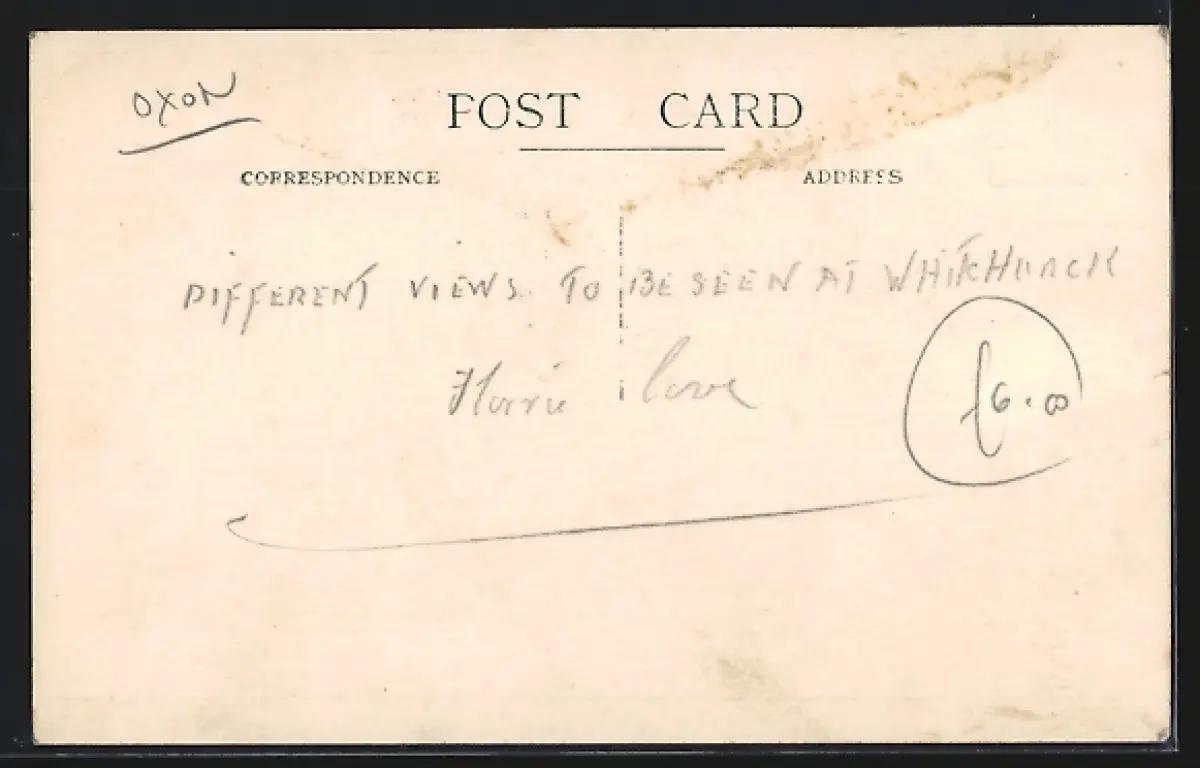 OXON
POST CARD
CORRESPONDENCE
ADDRESS
DIFFERENT VIEWS TO BE SEEN AT
Florrie love
£6.00